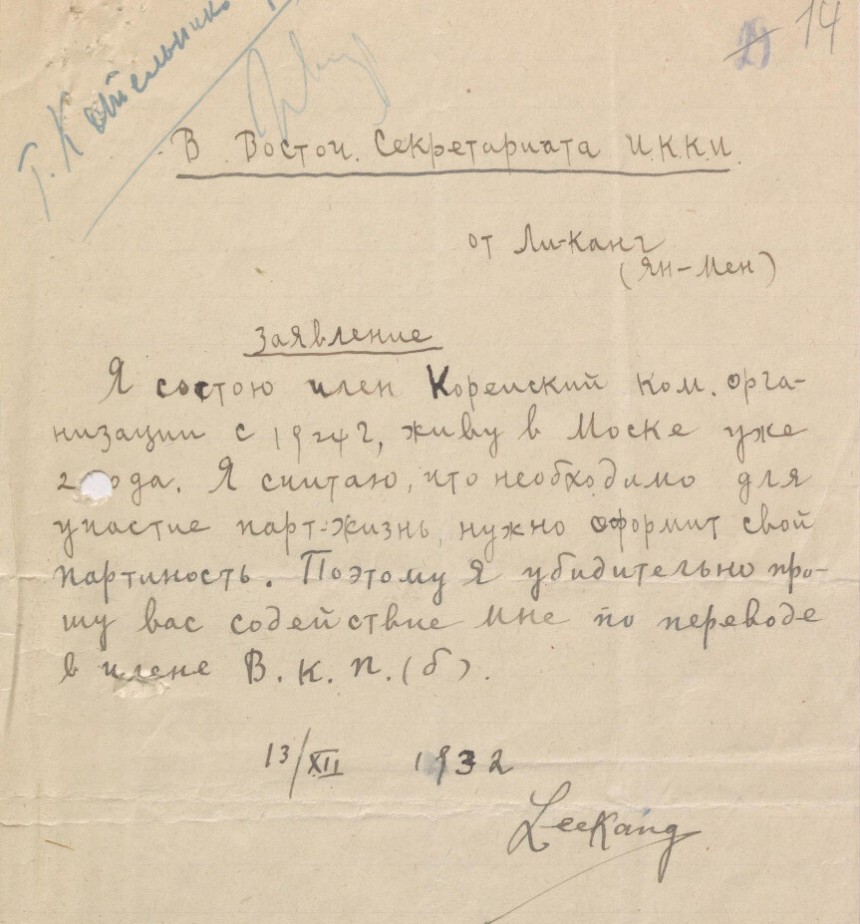 14
Т. Котельнико
В Восточ. Секретариата И.К.К.И.
от Ли-Канг
(Ян-Мен)
Заявление
Я состою член Корейский ком. орга-
низации с 1924 г, живу в Моске уже
2 ода. Я считаю, что необходимо для
участие парт-жизнь, нужно оформит свой
партиность. Поэтому я убидительно про-
шу вас содействие мне по переводе
в члене В.К.П.(б).
13/XII 1932
LeeKang